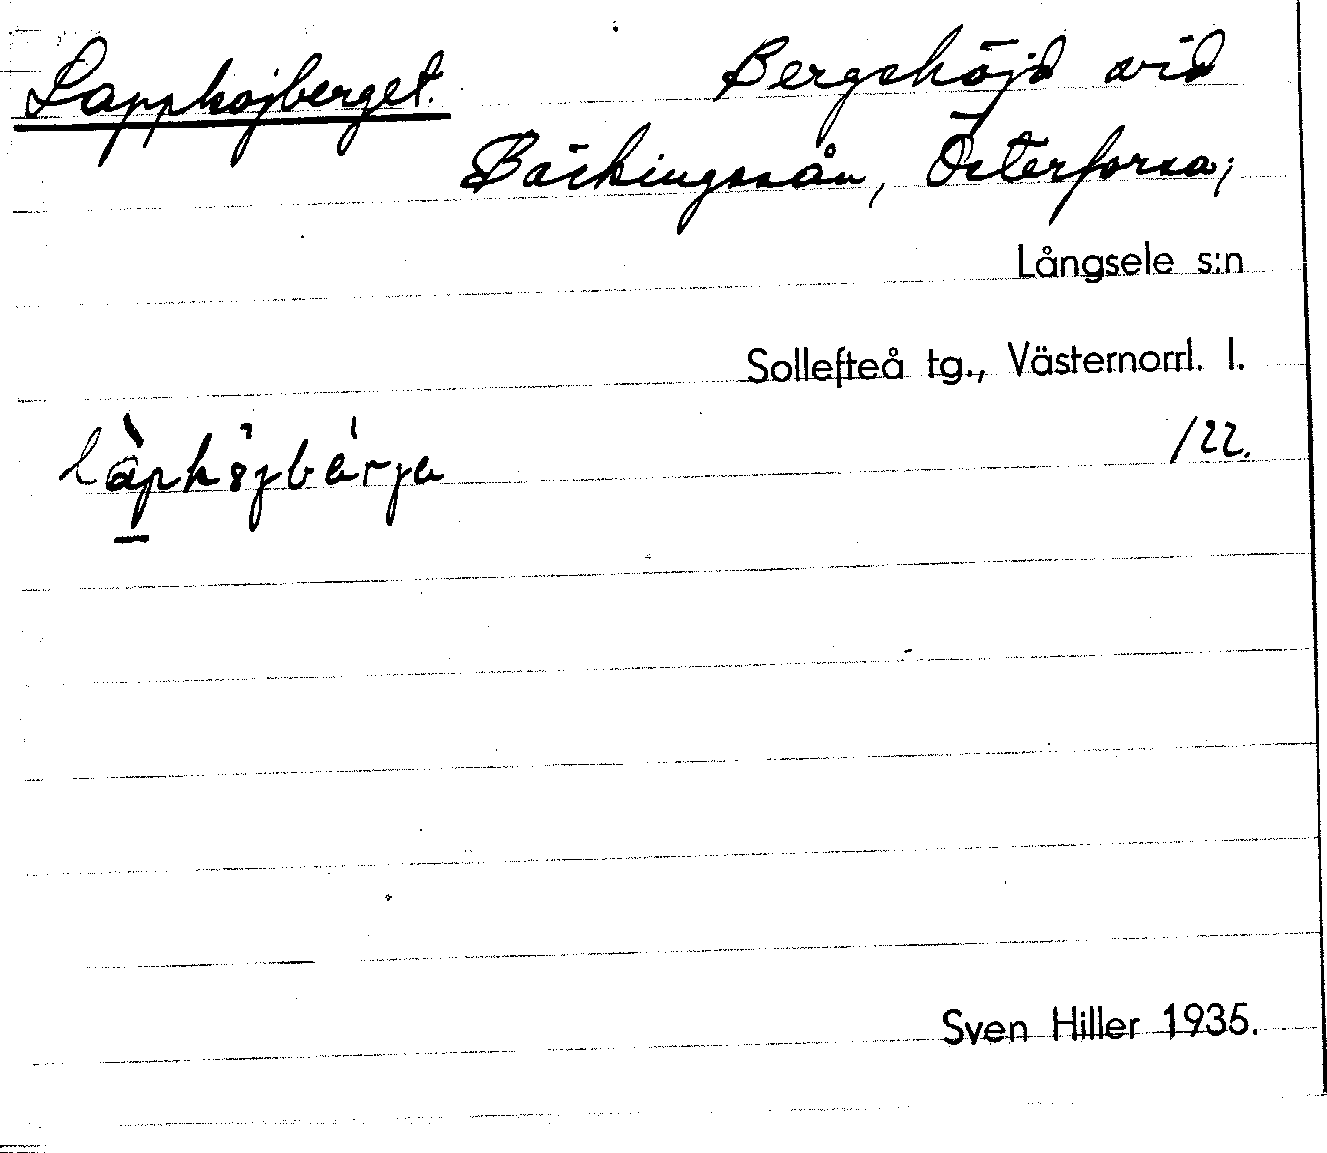 Lappkojberget. Bergshöjd vid
Bäckingssån, Österforsa;
Långsele s:n
Sollefteå tg., Västernorrl. l.
/22.
Sven Hiller 1935.